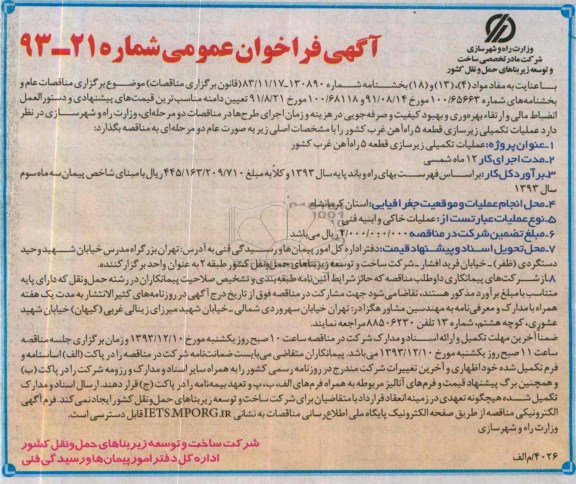 وزارت راه و شهرسازی
شرکت مادر تخصصی ساخت
و توسعه زیربناهای حمل و نقل کشور
آگهی فراخوان عمومی شماره ۲۱ــ۹۳
با عنایت به مفاد مواد (۴)، (۱۳) و (۱۸) بخشنامه شماره ۱۳۰۸۹۰-۸۳/۱۱/۱۷ (قانون برگزاری مناقصات) موضوع برگزاری مناقصات عام و
بخشنامه‌های شماره ۱۰۰/۶۵۶۶۳ مورخ ۹۱/۰۸/۱۴ و ۱۰۰/۶۸۱۱۸ مورخ ۹۱/۸/۲۱ تعیین دامنه مناسب‌ترین قیمت‌های پیشنهادی و دستورالعمل
انضباط مالی و ارتقاء بهره‌وری و بهبود کیفیت و صرفه‌جویی در هزینه و زمان اجرای طرح‌ها در مناقصات دو مرحله‌ای، وزارت راه و شهرسازی در نظر
دارد عملیات تکمیلی زیرسازی قطعه ۵ راه‌آهن غرب کشور را با مشخصات اصلی زیر به صورت عام دو مرحله‌ای به مناقصه بگذارد:
۱ـ عنوان پروژه: عملیات تکمیلی زیرسازی قطعه ۵ راه‌آهن غرب کشور
۲ـ مدت اجرای کار ۱۲ ماه شمسی
۳ـ برآورد کل کار: براساس فهرست بهای راه و باند پایه سال ۱۳۹۳ و کلاً به مبلغ ۴۴۵/۱۶۳/۲۰۹/۷۱۰ ریال با مبنای شاخص پیمان سه ماه سوم
سال ۱۳۹۳
۴ـ محل انجام عملیات و موقعیت جغرافیایی: استان کرمانشاه
۵ـ نوع عملیات عبارتست از: عملیات خاکی و ابنیه فنی
۶ـ مبلغ تضمین شرکت در مناقصه ۲/۰۰۰/۰۰۰/۰۰۰ ریال می‌باشد
۷ـ محل تحویل اسناد و پیشنهاد قیمت: دفتر اداره کل امور پیمان‌ها و رسیدگی فنی به آدرس: تهران بزرگراه مدرس خیابان شهید وحید
دستگردی (ظفر) ـ خیابان فرید افشار ـ شرکت ساخت و توسعه زیربناهای حمل و نقل کشور طبقه ۲ به عنوان واحد برگزار کننده.
۸ـ از شرکت‌های پیمانکاری داوطلب مناقصه که حائز شرایط آئین‌نامه طبقه‌بندی و تشخیص صلاحیت پیمانکاران در رشته حمل و نقل که دارای پایه
متناسب با مبلغ برآورد مذکور هستند، تقاضا می‌شود جهت مشارکت در مناقصه فوق از تاریخ درج آگهی در روزنامه‌های کثیرالانتشار به مدت یک هفته
همراه با مدارک و معرفی‌نامه به مهندسین مشاور هگزا در: تهران خیابان سهروردی شمالی ـ خیابان شهید میرزای زینالی غربی (کیهان) خیابان شهید
عشوری، کوچه هشتم، شماره ۱۳ تلفن ۸۸۵۰۶۲۳۰ مراجعه نمایند.
ضمناً آخرین مهلت تکمیل و ارائه اسناد و مدارک شرکت در مناقصه ساعت ۱۰ صبح روز یکشنبه مورخ ۱۳۹۳/۱۲/۱۰ و زمان برگزاری جلسه مناقصه
ساعت ۱۱ صبح روز یکشنبه مورخ ۱۳۹۳/۱۲/۱۰ می‌باشد. پیمانکاران متقاضی می‌بایست ضمانت‌نامه شرکت در مناقصه را در پاکت (الف) اساسنامه و
فرم تکمیل شده خوداظهاری و آخرین تغییرات شرکت مندرج در روزنامه رسمی کشور را به همراه سایر اسناد و مدارک و رزومه شرکت را در پاکت (ب)
و همچنین برگ پیشنهاد قیمت و فرم‌های آنالیز مربوطه به همراه فرم‌های الف، ب، پ و تعهد بیمه‌نامه را در پاکت (ج) قرار دهند. ارسال اسناد و مدارک
تکمیل شده هیچگونه تعهدی در زمینه انعقاد قرارداد با متقاضیان برای شرکت ساخت و توسعه زیربناهای حمل و نقل کشور ایجاد نمی‌کند. فرم آگهی
الکترونیکی مناقصه از طریق صفحه الکترونیک پایگاه ملی اطلاع‌رسانی مناقصات به نشانی IETS.MPORG.IR قابل دسترسی است.
وزارت راه و شهرسازی
شرکت ساخت و توسعه زیربناهای حمل و نقل کشور
اداره کل دفتر امور پیمان‌ها و رسیدگی فنی
۴۰۲۶/م الف